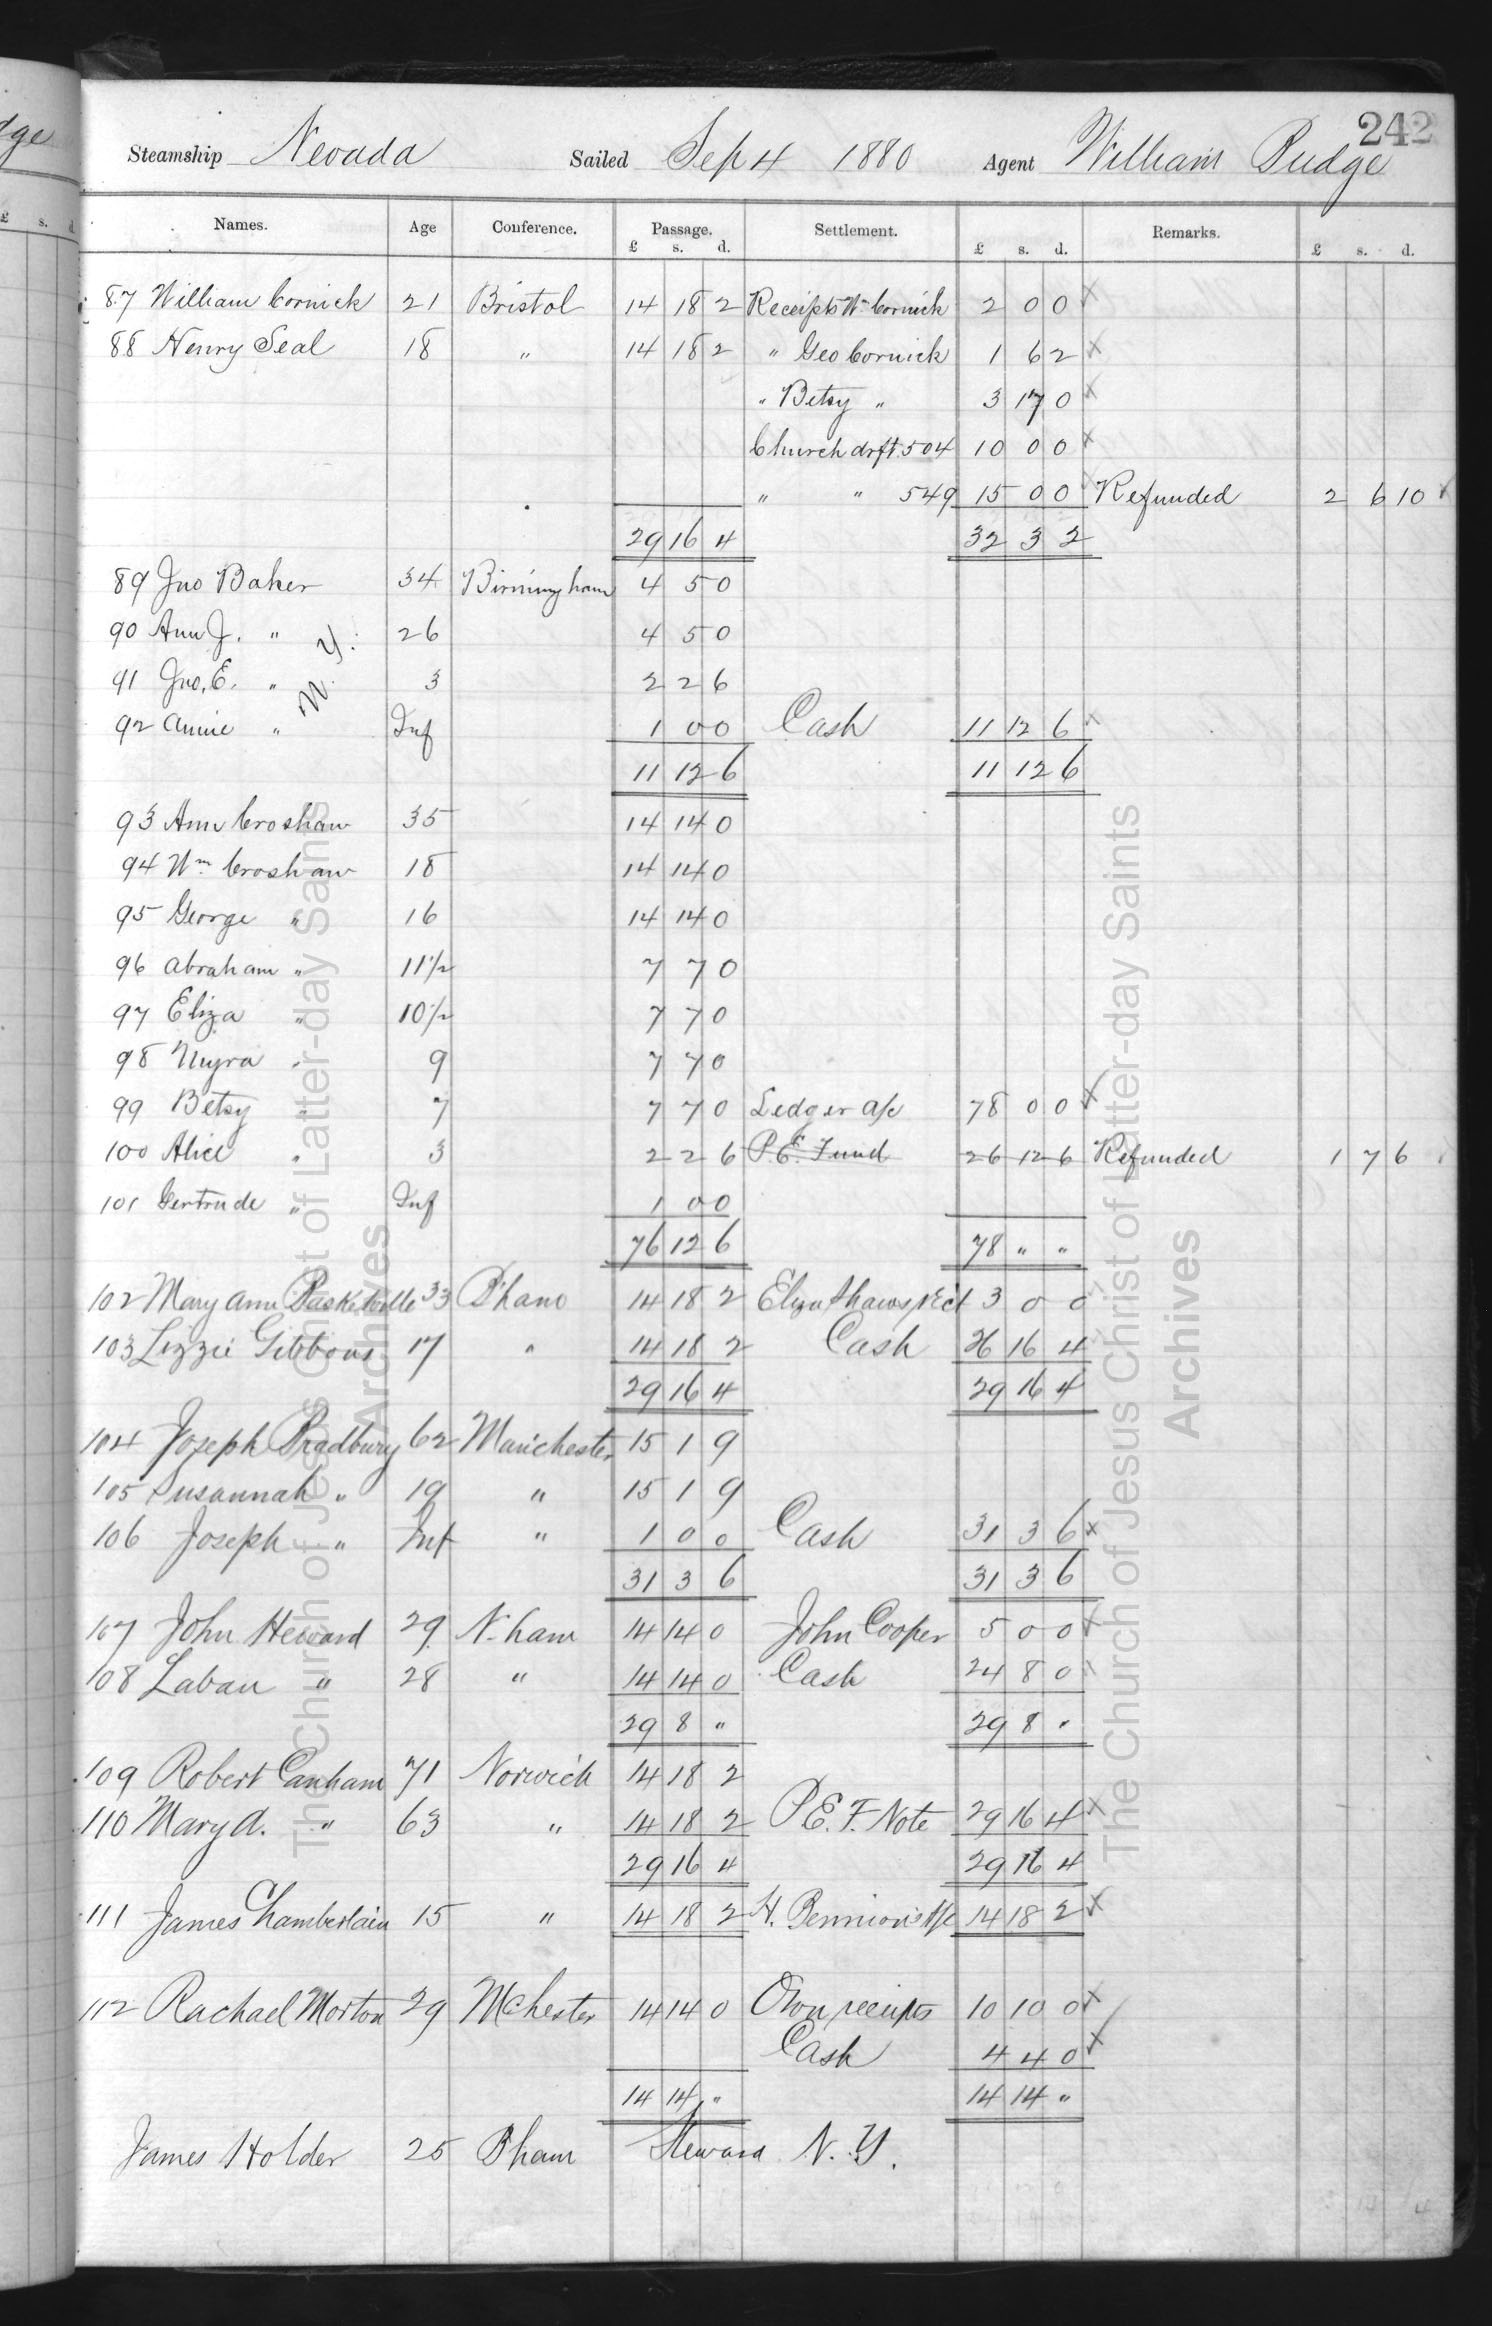 242
Steamship Nevada Sailed Sep 4 1880 Agent William Budge
Names. Age Conference. Passage. Settlement. Remarks.
£ s. d. £ s. d. £ s. d.
87 William Cornick 21 Bristol 14 18 2 Receipts Wm Cornick 2 0 0 x
88 Henry Seal 18 " 14 18 2 " Geo Cornick 1 6 2 x
" Betsy " 3 17 0 x
Church drft. 504 10 0 0 x
" " 549 15 0 0 Refunded 2 6 10
29 16 4 32 3 2
89 Jno Baker 34 Birmingham 4 5 0
90 Ann J. " 26 4 5 0
N. Y.
91 Jno. E. " 3 2 2 6
92 Annie " Inf 1 0 0 Cash 11 12 6 x
11 12 6 11 12 6
93 Ann Croshaw 35 14 14 0
94 Wm Croshaw 18 14 14 0
95 George " 16 14 14 0
96 Abraham " 11 1/2 7 7 0
97 Eliza " 10 1/2 7 7 0
98 Myra " 9 7 7 0
99 Betsy " 7 7 7 0 Ledger a/c 78 0 0 x
100 Alice " 3 2 2 6 P.E. Fund 26 12 6 Refunded 1 7 6
101 Gertrude " Inf 1 0 0
76 12 6 78 " "
102 Mary Ann Baskerville 33 B'ham 14 18 2 Eliza Shaws rect 3 0 0
103 Lizzie Gibbons 17 " 14 18 2 Cash 26 16 4
29 16 4 29 16 4
104 Joseph Bradbury 62 Manchester 15 1 9
105 Susannah " 19 " 15 1 9
106 Joseph " Inf " 1 0 0 Cash 31 3 6 x
31 3 6 31 3 6
107 John Heward 29 N.ham 14 14 0 John Cooper 5 0 0 x
108 Laban " 28 " 14 14 0 Cash 24 8 0 x
29 8 " 29 8 "
109 Robert Canham 71 Norwich 14 18 2
110 Mary A. " 63 " 14 18 2 P.E.F. Note 29 16 4 x
29 16 4 29 16 4
111 James Chamberlain 15 " 14 18 2 H. Bennion's a/c 14 18 2 x
112 Rachael Morton 29 Mchester 14 14 0 Own receipts 10 10 0 x
Cash 4 4 0 x
14 14 " 14 14 "
James Holder 25 B'ham Steward N. Y.
The Church of Jesus Christ of Latter-day Saints
Archives
The Church of Jesus Christ of Latter-day Saints
Archives